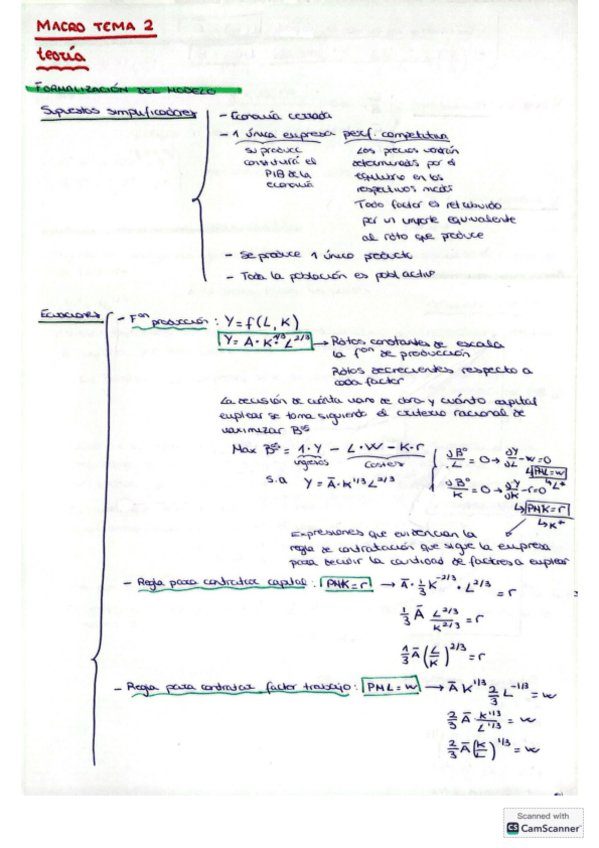 MACRO TEMA 2
teoría
FORMALIZACIÓN DEL MODELO
Supuestos simplificadores
- Economía cerrada
- 1 única empresa perf. competitiva
su produce
constituirá el
PIB de la
economía
Los precios vendrán
determinados por el
equilibrio en los
respectivos mcdos
Todo factor es retribuido
por un importe equivalente
al rdto que produce
- Se produce 1 único producto
- Toda la población es pobl activa
Ecuaciones
- Fºn producción: Y = f(L, K)
Y = A · K^1/3 L^2/3 → Rdtos constantes de escala
la fºn de producción
Rdtos decrecientes respecto a
cada factor
La decisión de cuánta mano de obra y cuánto capital
emplear se toma siguiendo el criterio racional de
maximizar Bºs
Max Bºs = 1·Y - L·W - K·r
ingresos costes
s.a Y = Ā·K^1/3 L^2/3
∂Bº/L = 0 → ∂Y/∂L - w = 0
↳ PML = w
↳ L*
∂Bº/K = 0 → ∂Y/∂K - r = 0
↳ PMK = r
↳ K*
Expresiones que evidencian la
regla de contratación que sigue la empresa
para decidir la cantidad de factores a emplear
- Regla para contratar capital: PMK = r → Ā · 1/3 K^-2/3 · L^2/3 = r
1/3 Ā L^2/3 / K^2/3 = r
1/3 Ā (L/K)^2/3 = r
- Regla para contratar factor trabajo: PML = w → Ā K^1/3 2/3 L^-1/3 = w
2/3 Ā · K^1/3 / L^1/3 = w
2/3 Ā (K/L)^1/3 = w
Scanned with
CS CamScanner